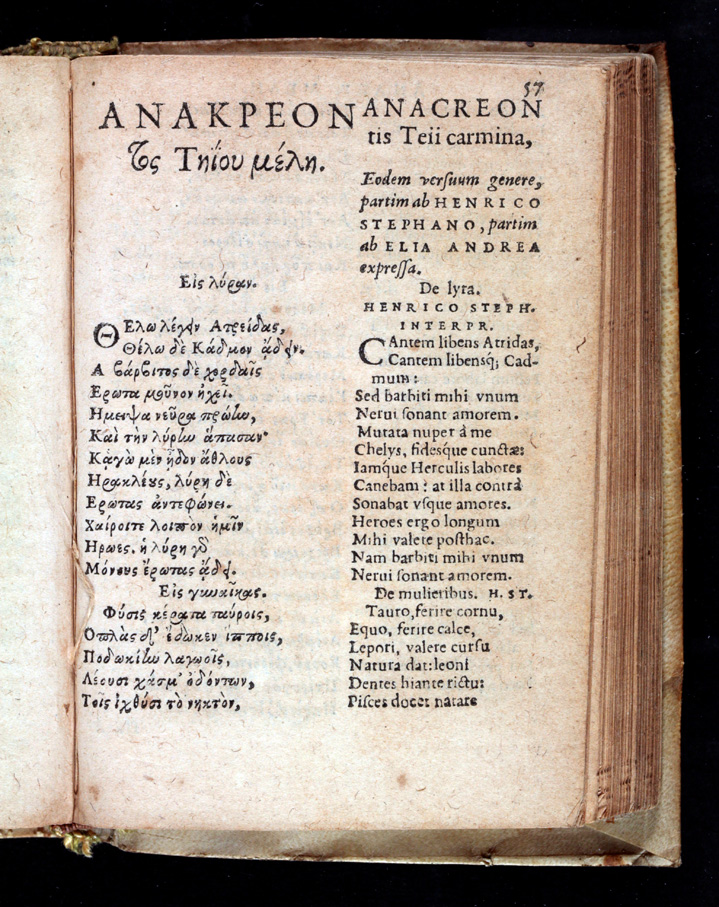 57
ΑΝΑΚΡΕΟΝ
τος Τηΐου μέλη.
Εἰς λύραν.
ΘΕλω λέγειν Ατρείδας,
Θέλω δὲ Κάδμον ᾄδειν.
Α βάρβιτος δὲ χορδαῖς
Ερωτα μοῦνον ἠχεῖ.
Ημειψα νεῦρα πρώην,
Καὶ τὴν λύρην ἅπασαν·
Κᾀγὼ μὲν ᾖδον ἄθλους
Ηρακλέους, λύρη δὲ
Ερωτας ἀντεφώνει.
Χαίροιτε λοιπὸν ἡμῖν
Ηρωες. ἡ λύρη γὸ
Μόνους ἔρωτας ᾄδει.
Εἰς γυναῖκας.
Φύσις κέρατα ταύροις,
Οπλὰς δ' ἔδωκεν ἵπποις,
Ποδωκίην λαγωοῖς,
Λέουσι χάσμ' ὀδόντων,
Τοῖς ἰχθύσι τὸ νηκτὸν,
ANACREON
tis Teii carmina,
Eodem versuum genere,
partim ab HENRICO
STEPHANO, partim
ab ELIA ANDREA
expressa.
De lyra.
HENRICO STEPH.
INTERPR.
CAntem libens Atridas,
Cantem libensq; Cad-
mum:
Sed barbiti mihi vnum
Nerui sonant amorem.
Mutata nuper à me
Chelys, fidesque cunctæ:
Iamque Herculis labores
Canebam: at illa contrà
Sonabat vsque amores.
Heroes ergo longum
Mihi valete posthac.
Nam barbiti mihi vnum
Nerui sonant amorem.
De mulieribus. H. ST.
Tauro, ferire cornu,
Equo, ferire calce,
Lepori, valere cursu
Natura dat: leoni
Dentes hiante rictu:
Pisces docet natare